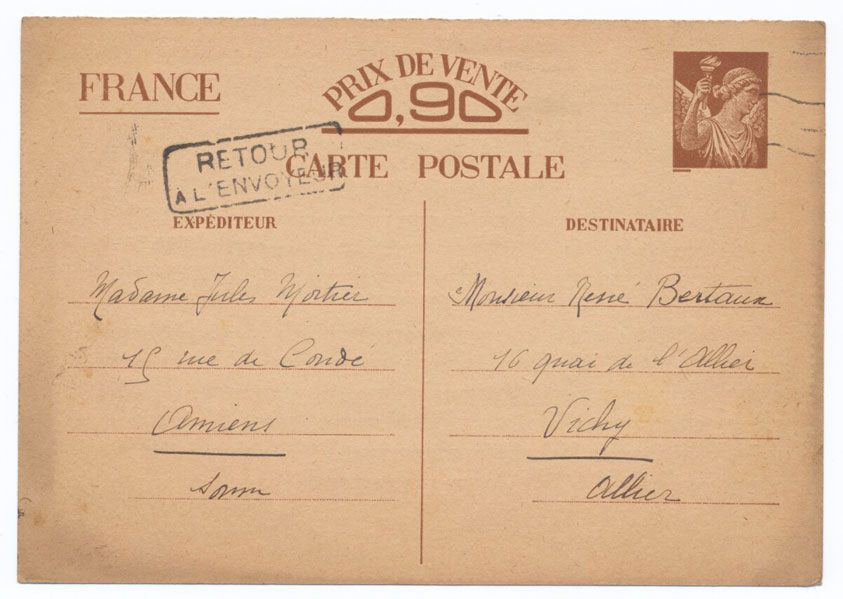 FRANCE
PRIX DE VENTE
0,90
RETOUR
A L'ENVOYEUR
CARTE POSTALE
EXPÉDITEUR
Madame Jules Mortier
15 rue de Condé
Amiens
Somme
DESTINATAIRE
Monsieur René Bertaux
16 quai de l'Allier
Vichy
Allier